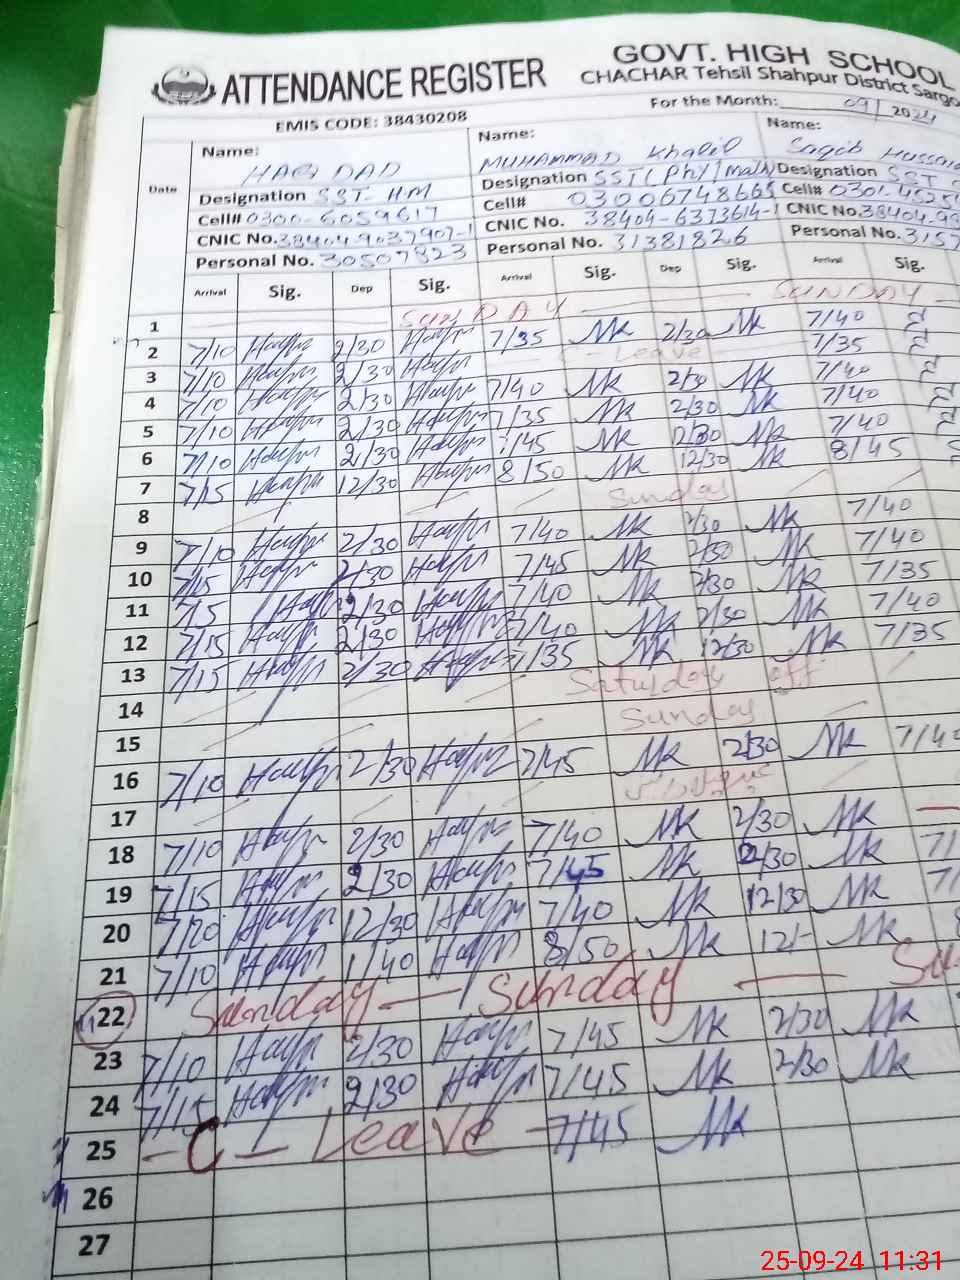 ATTENDANCE REGISTER
GOVT. HIGH SCHOOL
CHACHAR Tehsil Shahpur District Sargo
EMIS CODE: 38430208
For the Month: 09/2024
Date
Name: HAQ DAD
Designation SST-HM
Cell# 0300-6059617
CNIC No. 38404-9037907-1
Personal No. 30507823
Name: MUHAMMAD Khalil
Designation SST(Phy/Math)
Cell# 03006748665
CNIC No. 38404-6373614-1
Personal No. 31381826
Name: Saqib Hussain
Designation SST
Cell# 0301-4525
CNIC No. 38404-99
Personal No. 3157
Arrival Sig. Dep Sig. Arrival Sig. Dep Sig. Arrival Sig.
1 SUNDAY SUNDAY
2 7/10 2/30 7/35 Mk 2/30 Mk 7/40
3 7/10 2/30 C-Leave 7/35
4 7/10 2/30 7/40 Mk 2/30 Mk 7/40
5 7/10 2/30 7/35 Mk 2/30 Mk 7/40
6 7/10 2/30 7/45 Mk 12/30 Mk 7/40
7 7/15 12/30 8/50 Mk 12/30 Mk 8/45
8 Sunday
9 7/10 2/30 7/40 Mk 2/30 Mk 7/40
10 7/15 2/30 7/45 Mk 2/30 Mk 7/40
11 7/15 2/30 7/40 Mk 2/30 Mk 7/35
12 7/15 2/30 7/40 Mk 2/30 Mk 7/40
13 7/15 2/30 7/35 Mk 12/30 Mk 7/35
14 Saturday off
15 Sunday
16 7/10 2/30 7/45 Mk 2/30 Mk 7/40
17
18 7/10 2/30 7/40 Mk 2/30 Mk
19 7/15 2/30 7/45 Mk 2/30 Mk 7/
20 7/20 12/30 7/40 Mk 12/30 Mk 7/
21 7/10 1/40 8/50 Mk 12/- Mk 8
22 Sunday — Sunday — Su
23 7/10 2/30 7/45 Mk 2/30 Mk
24 7/15 2/30 7/45 Mk 2/30 Mk
25 -C- Leave - 7/45 Mk
26
27
25-09-24 11:31